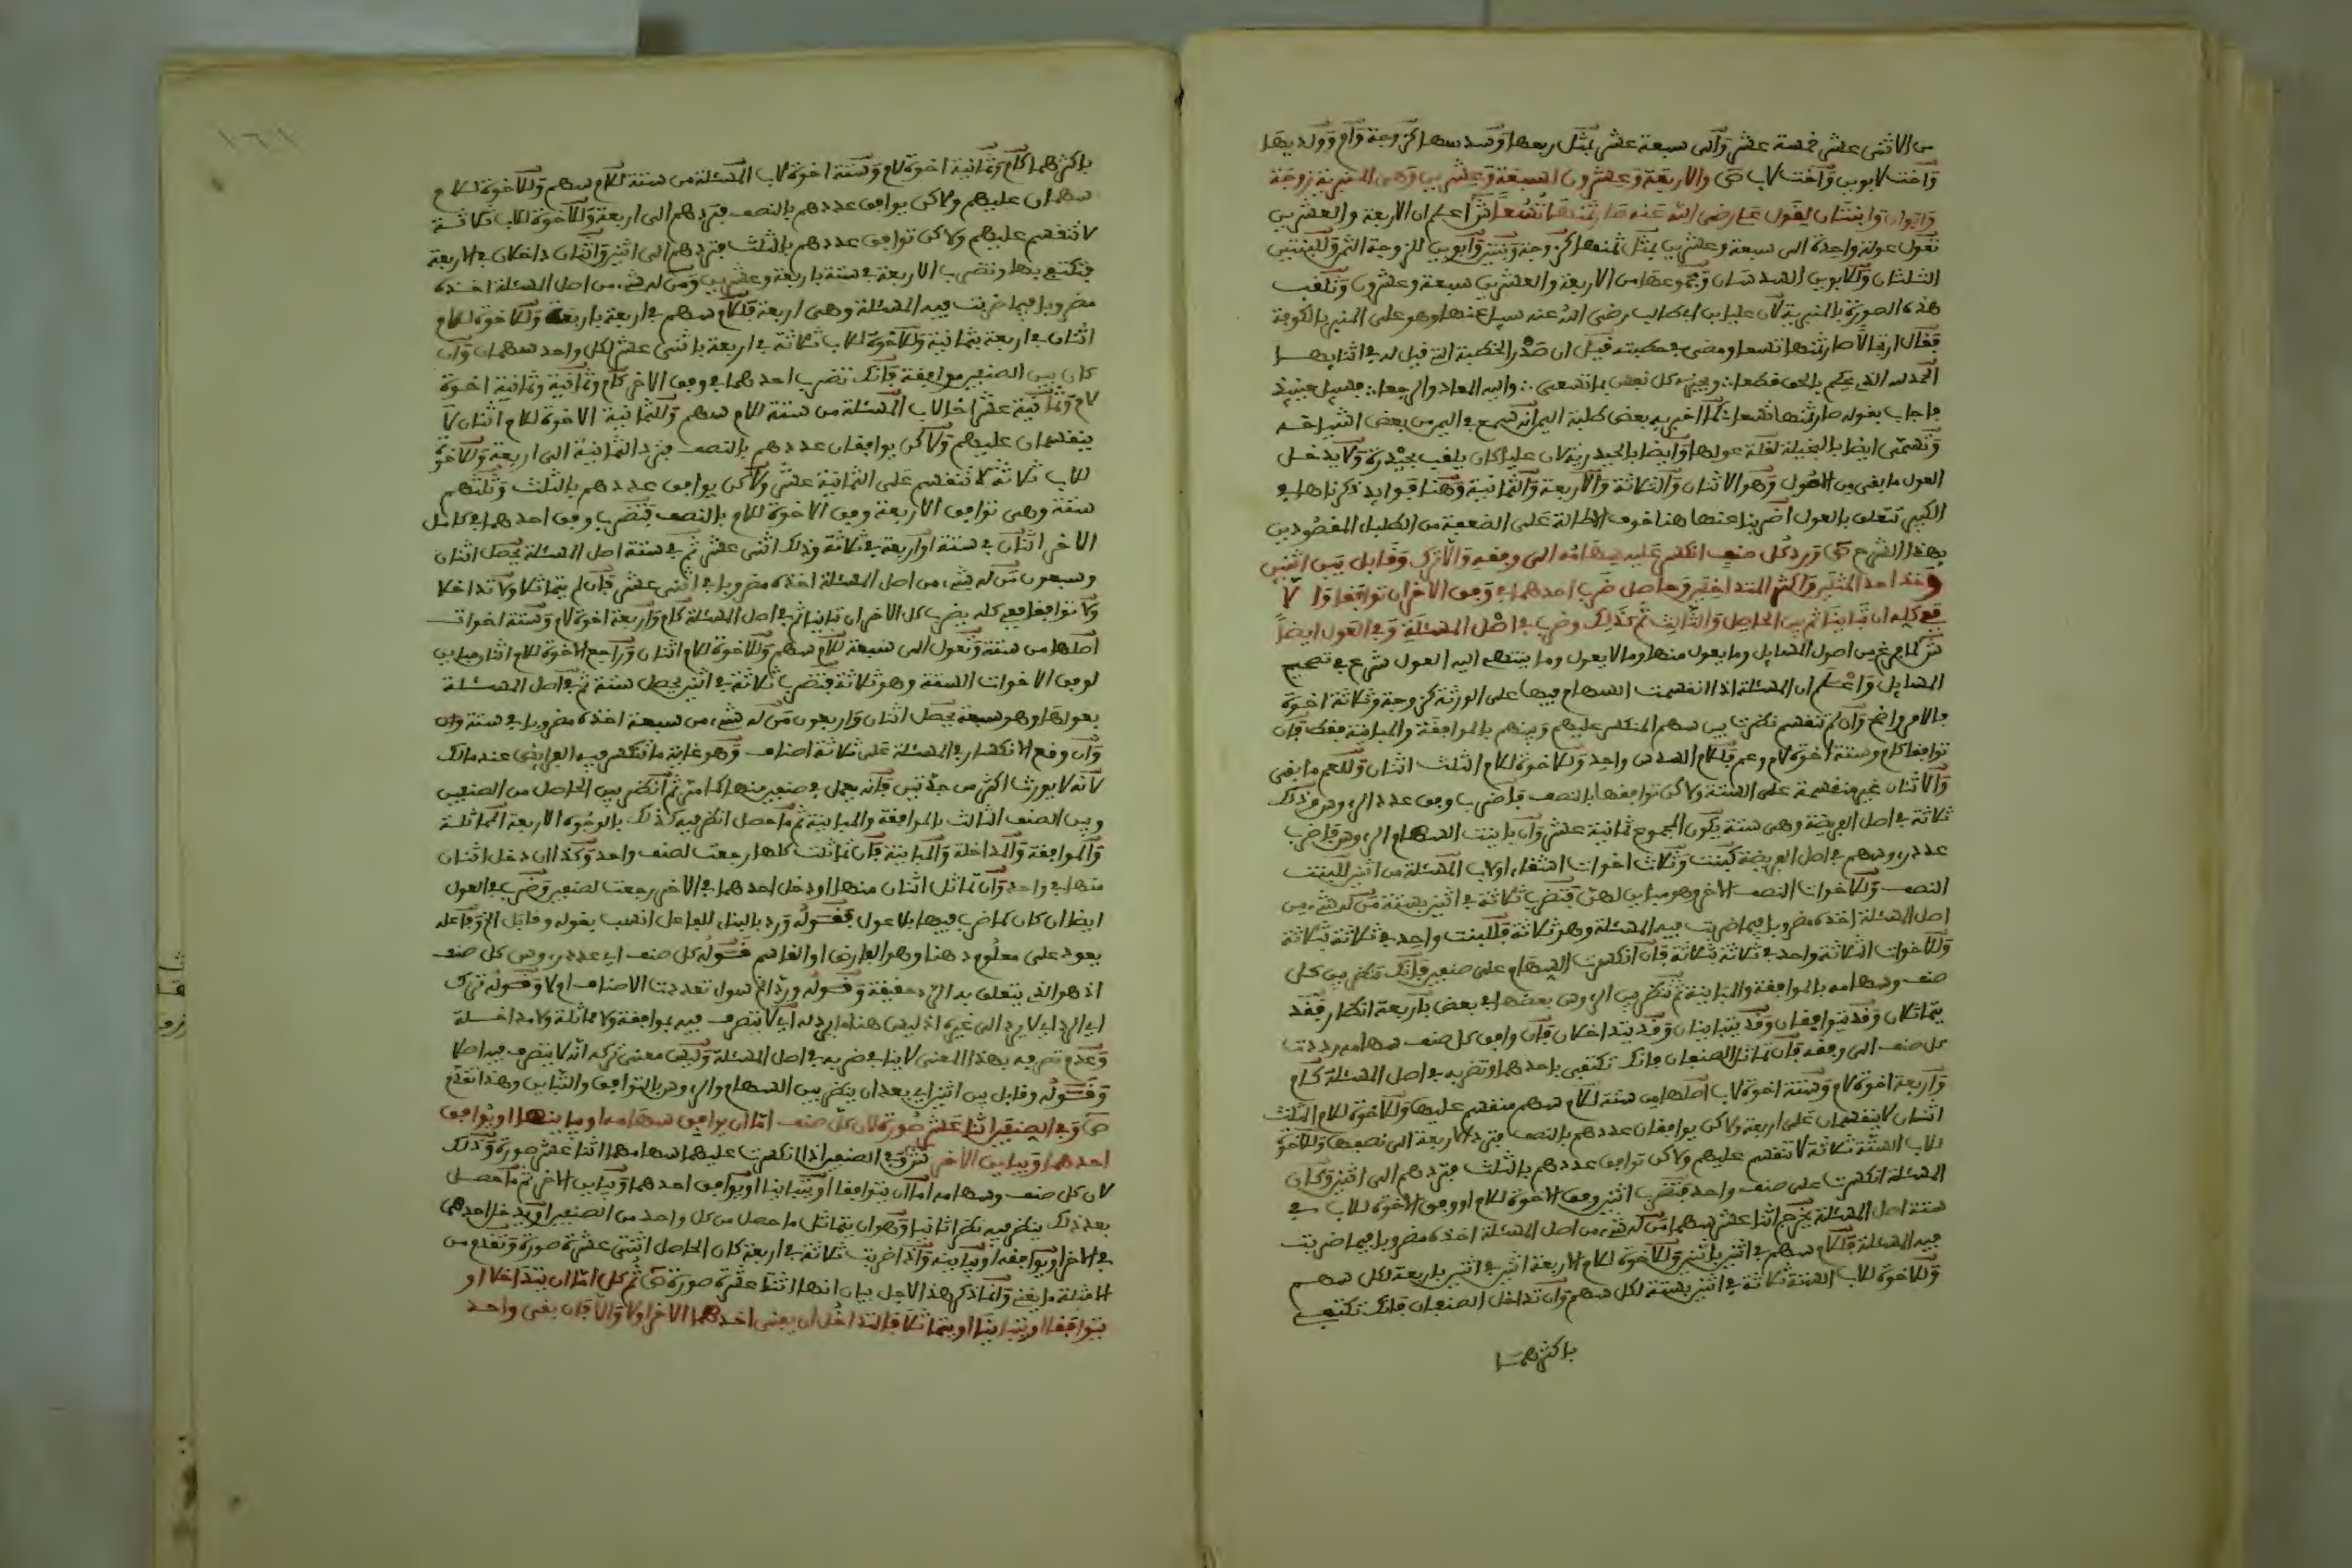 من الاثنى عشر خمسة عشر وآلى سبعة عشر بمثل ربعها وسدسها كزوجة وام وولديها
واخت لابوين واخت لاب ص والاربعة وعشرون لسبعة وعشرين وهى المنبرية زوجة
وابوان وابنتان لقول على رضى الله عنه صار ثمنها تسعا ش اعلم ان الاربعة والعشرين
تعول عولة واحدة الى سبعة وعشرين بمثل ثمنها كزوجة وبنتين وابوين للزوجة الثمن وللبنتين
الثلثان وللابوين السدسان ومجموعها من الاربعة والعشرين سبعة وعشرون وتلقب
هذه الصورة بالمنبرية لان عليا بن ابى طالب رضى الله عنه سيل عنها وهو على المنبر بالكوفة
فقال ارتجالا صار ثمنها تسعا ومضى فى خطبته قيل ان صدر الخطبة التى قيل له فى اثنايها
الحمد لله الذى يحكم بالحق قطعا ويجزى كل نفس بما تسعى واليه المعاد والرجعا فسيل حينيذ
فاجاب بقوله صار ثمنها تسعا كما اخبر به بعض طلبة اليمن انه سمع فى اليمن من بعض اشياخه
وتسمى ايضا بالبخيلة لقلة عولها وايضا بالحيدرية لان عليا كان يلقب بحيدرة ولا يدخل
العول ما بقى من الاصول وهو الاثنان والثلاثة والاربعة والثمانية وهنا فوايد ذكرناها فى
الكبير تتعلق بالعول اضربنا عنها هنا خوف الاطالة على الضعفة من الطلبة المقصودين
بهذا الشرح ص ورد كل صنف انكسر عليه سهامه الى وفقه والا ترك وقابل بين اثنين
وخذ احد المثلين واكثر المتداخلين وحاصل ضرب احدهما فى وفق الاخر ان توافقا والا
ففى كله ان تباينا ثم بين الحاصل والثالث ثم كذلك وضرب فى اصل المسئلة وفى العول ايضا
ش لما فرغ من اصول المسايل وما يعول منها وما لا يعول وما ينتهى اليه العول شرع فى تصحيح
المسايل واعلم ان المسئلة اذا انقسمت السهام فيها على الورثة كزوجة وثلاثة اخوة
فالامر واضح وان لم تنقسم نظرت بين سهم المنكسر عليهم وبينهم بالموافقة والمباينة فقط فان
توافقا كام وستة اخوة لام وعم فللام السدس واحد وللاخوة للام الثلث اثنان وللعم ما بقى
والاثنان غير منقسمة على الستة ولاكن توافقها بالنصف فاضرب وفق عدد الرءوس وذلك
ثلاثة فى اصل الفريضة وهى ستة يكون المجموع ثمانية عشر وان باينت السهام الرءوس فاضرب
عدد رءوسهم فى اصل الفريضة كبنت وثلاث اخوات اشقاء او لاب المسئلة من اثنين للبنت
النصف وللاخوات النصف الاخر وهو مباين لهن فتضرب ثلاثة فى اثنين بستة من له شىء من
اصل المسئلة اخذه مضروبا فيما ضربت فيه المسئلة وهو ثلاثة فللبنت واحد فى ثلاثة بثلاثة
وللاخوات الثلاثة واحد فى ثلاثة بثلاثة فان انكسرت السهام على صنفين فانك تنظر بين كل
صنف وسهامه بالموافقة والمباينة ثم تنظر بين الرءوس بعضها فى بعض باربعة انظار فقد
يتماثلان وقد يتوافقان وقد يتباينان وقد يتداخلان فان وافق كل صنف سهامه رددت
كل صنف الى وفقه فان تماثل الصنفان فانك تكتفى باحدهما وتضربه فى اصل المسئلة كام
واربعة اخوة لام وستة اخوة لاب اصلها من ستة للام سهم منقسم عليها وللاخوة للام الثلث
اثنان لا ينقسمان على اربعة ولاكن يوافقان عددهم بالنصف فترد الاربعة الى نصفها وللاخوة
للاب الستة ثلاثة لا تنقسم عليهم ولاكن توافق عددهم بالثلث فتردهم الى اثنين وكان
المسئلة انكسرت على صنف واحد فتضرب اثنين وفق الاخوة للام او وفق الاخوة للاب فى
ستة اصل المسئلة يخرج اثنا عشر سهما من له شىء من اصل المسئلة اخذه مضروبا فيما ضربت
فيه المسئلة فللام سهم فى اثنين باثنين وللاخوة للام الاربعة اثنين فى اثنين باربعة لكل سهم
وللاخوة للاب الستة ثلاثة فى اثنين بستة لكل سهم وان تداخل الصنفان فانك تكتفى
باكثرهما
١٦١
باكثرهما كام وثمانية اخوة لام وستة اخوة لاب المسئلة من ستة للام سهم وللاخوة للام
سهمان عليهم ولاكن يوافق عددهم بالنصف فتردهم الى اربعة وللاخوة للاب ثلاثة
لا تنقسم عليهم ولاكن توافق عددهم بالثلث فتردهم الى اثنين واثنان داخلان فى الاربعة
فتكتفى بها وتضرب الاربعة فى ستة باربعة وعشرين ومن له شىء من اصل المسئلة اخذه
مضروبا فيما ضربت فيه المسئلة وهى اربعة فللام سهم فى اربعة باربعة وللاخوة للام
اثنان فى اربعة بثمانية وللاخوة للاب ثلاثة فى اربعة باثنى عشر لكل واحد سهمان وان
كان بين الصنفين موافقة فانك تضرب احدهما فى وفق الاخر كام وثمانية وثمانية اخوة
لام وثمانية عشر اخا لاب المسئلة من ستة للام سهم وللثمانية الاخوة للام اثنان لا
ينقسمان عليهم ولاكن يوافقان عددهم بالنصف فترد الثمانية الى اربعة وللاخوة
للاب ثلاثة لا تنقسم على الثمانية عشر ولاكن يوافق عددهم بالثلث وثلثهم
ستة وهى توافق الاربعة وفق الاخوة للام بالنصف فتضرب وفق احدهما فى كامل
الاخر اثنان فى ستة او اربعة فى ثلاثة وذلك اثنى عشر ثم فى ستة اصل المسئلة يحصل اثنان
وسبعون من له شىء من اصل المسئلة اخذه مضروبا فى اثنى عشر فان لم يتماثلا ولا تداخلا
ولا توافقا ففى كله يضرب كل الاخر ان تباينا ثم فى اصل المسئلة كام واربعة اخوة لام وستة اخوات
اصلها من ستة وتعول الى سبعة للام سهم وللاخوة للام اثنان وراجع الاخوة للام اثنان مباين
لوفق الاخوات الستة وهو ثلاثة فتضرب ثلاثة فى اثنين يحصل ستة ثم فى اصل المسئلة
بعولها وهو سبعة يحصل اثنان واربعون من له شىء من سبعة اخذه مضروبا فى ستة وان
وان وقع الانكسار فى المسئلة على ثلاثة اصناف وهو غاية ما تنكسر فيه الفرايض عند مالك
لانه لا يورث اكثر من جدتين فانه يعمل فى صنفين منها كما مر ثم انظر بين الحاصل من الصنفين
وبين الصنف الثالث بالموافقة والمباينة ثم ما حصل انظر فيه كذلك بالوجوه الاربعة المماثلة
والموافقة والمداخلة والمباينة فان تماثلت كلها رجعت لصنف واحد وكذا ان دخل اثنان
منها فى واحد وان تماثل اثنان منها او دخل احدهما فى الاخر رجعت لصنفين وضرب فى العول
ايضا ان كان كما ضرب فيها بلا عول فقوله ورد بالبناء للفاعل انسب بقوله وقابل الخ وفاعله
يعود على معلوم هنا وهو الفارض او القاسم قوله كل صنف اى عدد رءوس كل صنف
اذ هو الذى يتعلق به الرد حقيقة وقوله ورد الخ سواء تعددت الاصناف ام لا وقوله ترك
اى الرد اى لا يرد الى غيره اذ ليس هنا ما يرد له اى لا يتصرف فيه بموافقة ولا مماثلة ولا مداخلة
وعدم تصرفه بهذا المعنى لا ينافى ضربه فى اصل المسئلة وليس معنى تركه انه لا يتصرف فيه اصلا
وقوله وقابل بين اثنين اى بعد ان ينظر بين السهام والرءوس بالتوافق والتباين وهذا تقدم
ص وفى الصنفين اثنا عشر صورة لان كل صنف اما ان يوافق سهامه او يباينها او يوافق
احدهما ويباين الاخر ش وفى الصنفين اذا انكسرت عليهما سهامهما اثنا عشر صورة وذلك
لان كل صنف وسهامه اما ان يتوافقا او يتباينا او يوافق احدهما ويباين الاخر ثم ما حصل
بعد ذلك ينظر فيه نظرا ثانيا وهو ان يتماثل ما حصل من كل واحد من الصنفين او يدخل احدهما
فى الاخر او يوافقه او يباينه واذا ضربت ثلاثة فى اربعة كان الحاصل اثنتى عشرة صورة وتقدم من
الامثلة ما يغنى وانما ذكر هذا لاجل بيان انها اثنتا عشرة صورة ص ثم كل اما ان يتداخلا او
يتوافقا او يتباينا او يتماثلا فالتداخل ان يفنى احدهما الاخر اولا والا فان بقى واحد